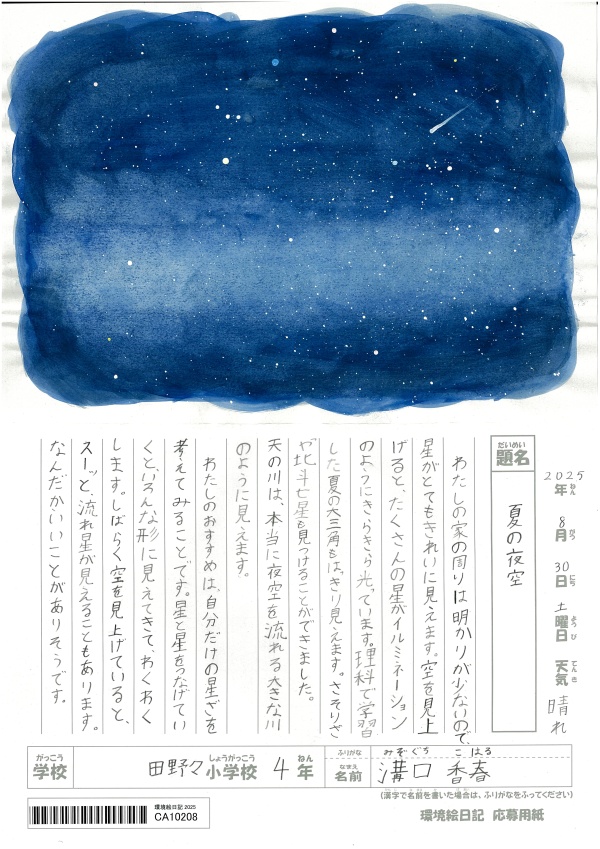 2025
年 ねん
8
月 がつ
30
日 にち
土
曜日 ようび
天気 てんき
晴れ
題名 だいめい
夏の夜空
わたしの家の周りは明かりが少ないので、
星がとてもきれいに見えます。空を見上
げると、たくさんの星がイルミネーション
のようにきらきら光っています。理科で学習
した夏の大三角もはっきり見えます。さそりざ
や北斗七星も見つけることができました。
天の川は、本当に夜空を流れる大きな川
のように見えます。
わたしのおすすめは、自分だけの星ざを
考えてみることです。星と星をつなげてい
くと、いろんな形に見えてきて、わくわく
します。しばらく空を見上げていると、
スーッと、流れ星が見えることもあります。
なんだかいいことがありそうです。
がっこう しょうがっこう ねん
学校 田野々小学校 4年
ふりがな みぞぐち こはる
なまえ
名前 溝口 香春
(漢字で名前を書いた場合は、ふりがなをふってください)
環境絵日記 応募用紙
環境絵日記 2025
CA10208